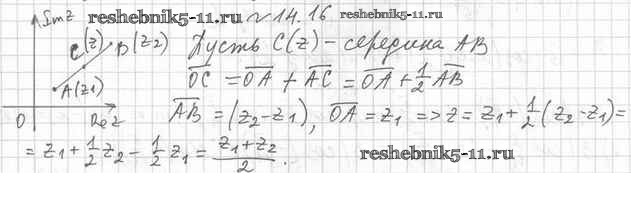 reshebnik5-11.ru
№14.16 reshebnik5-11.ru
Imz
C(z) B(z2) Пусть C(z) - середина AB
A(z1) OC = OA + AC = OA + 1/2 AB
O Rez AB = (z2-z1), OA = z1 => z = z1 + 1/2(z2-z1) =
= z1 + 1/2 z2 - 1/2 z1 = (z1+z2)/2.
reshebnik5-11.ru